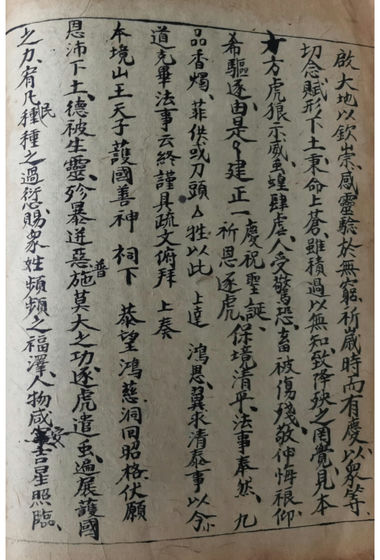 啟大地以欽崇感靈驗於無窮祈歲時而有慶以衆等
切念賦形下土秉命上蒼雖積過以無知致降殃之罔覺見本
方虎狼示威虫蝗肆虐人受驚恐畜被傷殘敬伸悔根仰
希驅逐由是建正一慶祝聖誕祈恩逐虎保境清平法事奉然九
品香燭菲供或刀頭牲以此上達鴻恩翼求清泰事以今
道完畢法事云終謹具疏文俯拜上奏
本境山王天子護國善神祠下恭望鴻慈洞回昭格伏願
恩沛下土德被生靈殄暴逬惡普施莫大之功逐虎遣虫遍展護國
之力宥凡民種種之過愆賜衆姓頻頻之福澤人物咸安吉星照臨